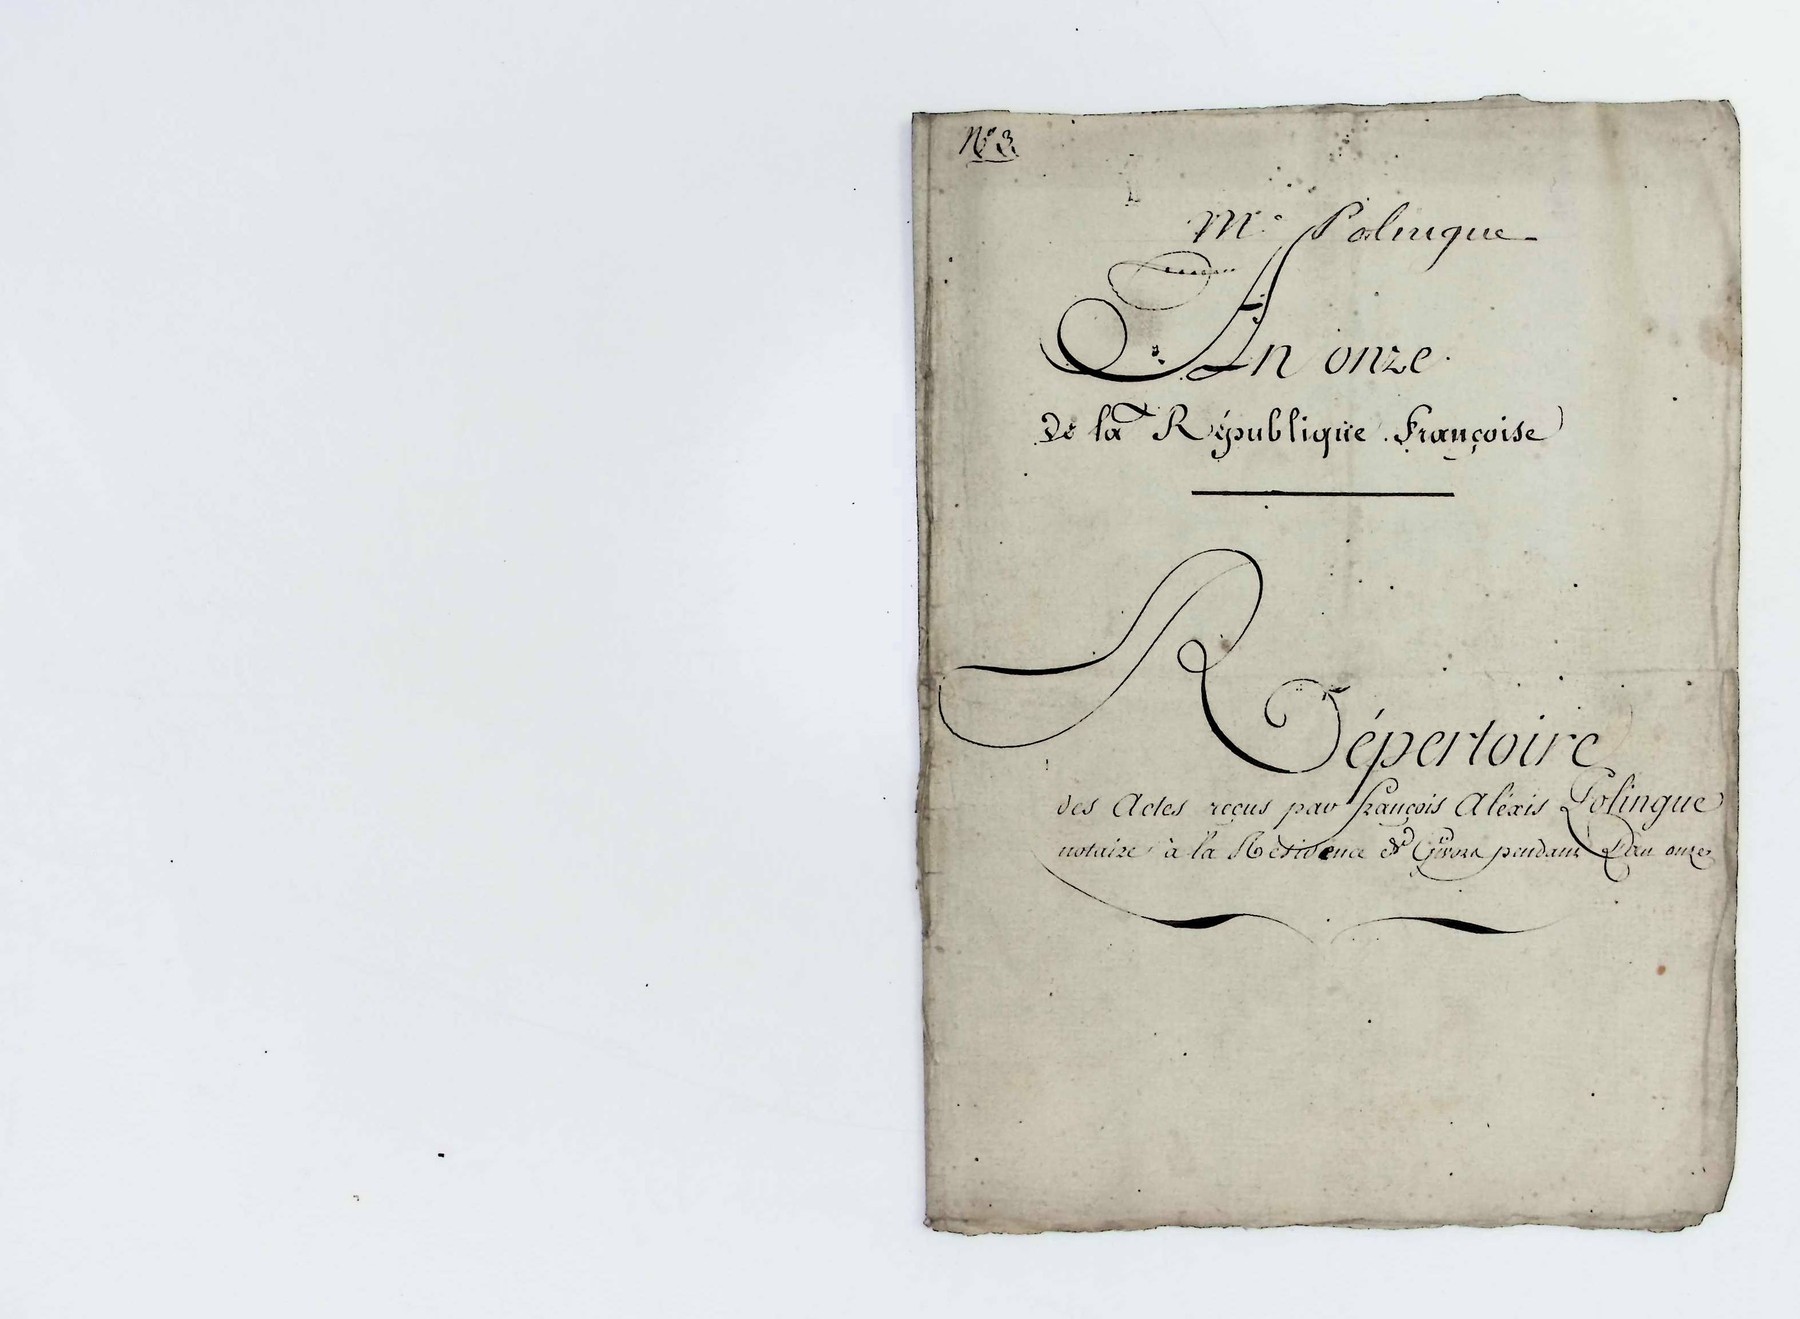 N.º 3.
M.e Polingue
An onze
De la République Françoise
Répertoire
des Actes reçus par François Aléxis Polingue
notaire à la Résidence de Givors pendant L'an onze